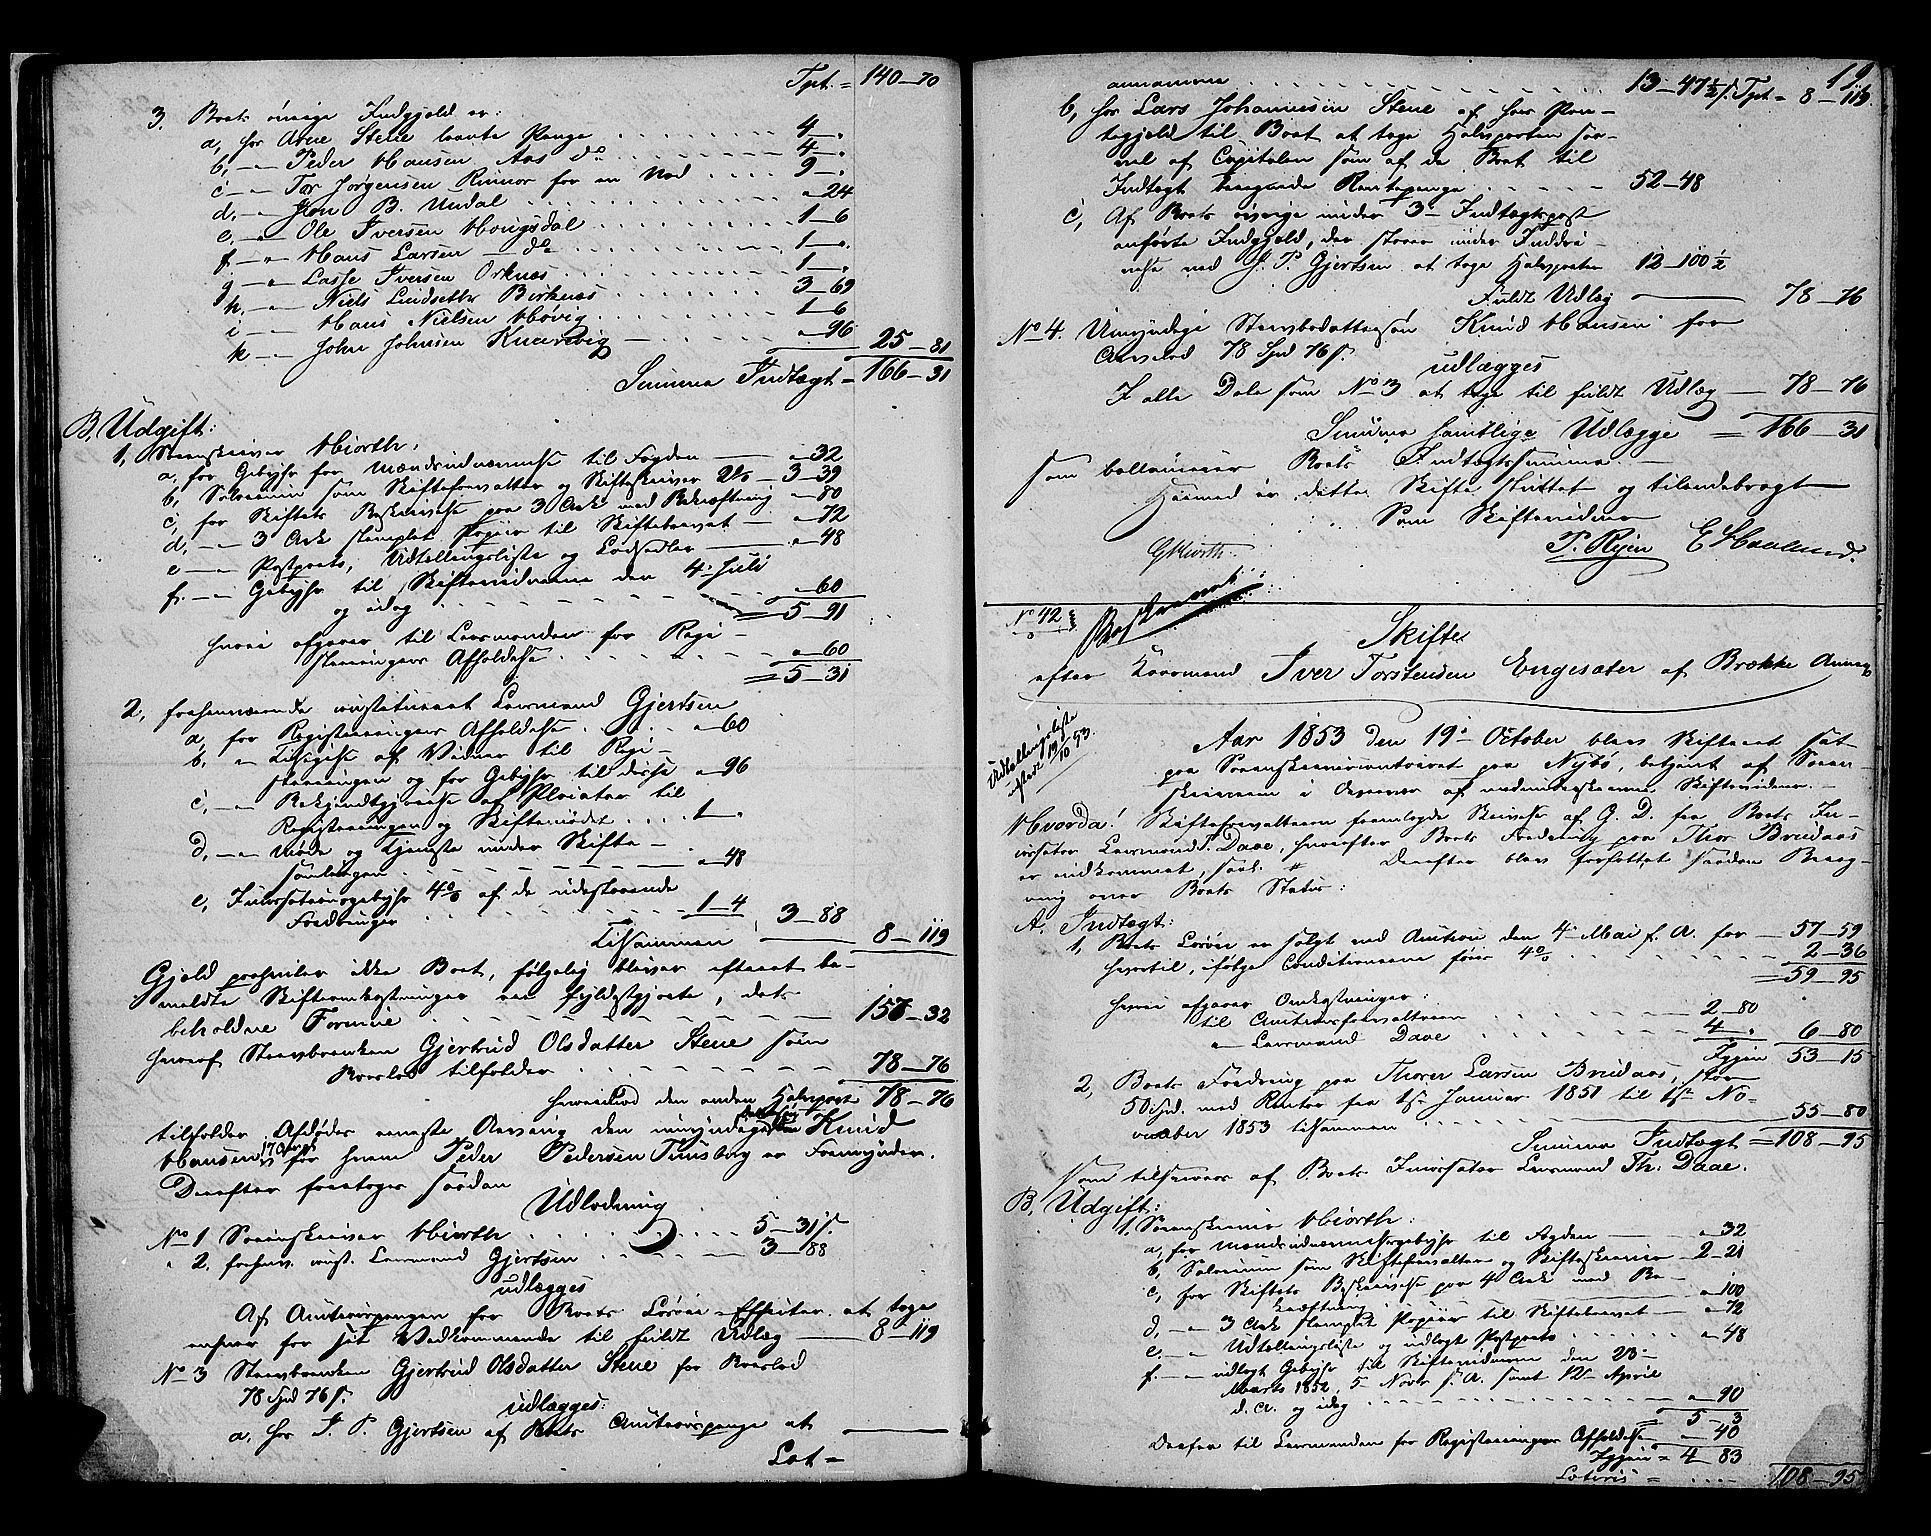 Tpt. = 140—70
3. Boets øvrige Indgjeld er:
a, hos Arne Stene laante Penge 4—„
b, —„— Peder Hansen Aas do 4—„
c —„— Tor Jørgensen Rinnor for en Nod 9—„
d, —„— Jon B. Undal „—24
e, —„— Ole Iversen Hougsdal 1—6
f —„— Hans Larsen — do 1—„
g —„— Lasse Iversen Orknæs 1—„
h, —„— Niels Lindseth Birknæs 3—69
i —„— Hans Nielsen Høvig 1—6
k —„— John Johnsen Knarvig „—96 25—81
Summa Indtægt = 166—31
B, Udgift:
1, Sorenskriver Hiorth,
a, for Gebyhr for Mændsudnævnelse til Fogden „—32
b, Salarium som Skifteforvalter og Skifteskriver 2% 3—39
c, for Skiftets Beskrivelse paa 3 Ark med Bekræftning „—80
d, —„— 3 Ark stemplet Papiir til Skiftebrevet „—72
e —„— Postporto, Udtællingsliste og Lodsedler „—48
f. —„— Gebyhr til Skiftevidnerne den 4de Juli
og idag „—60
= 5—91
hvoraf afgaaer til Lensmanden for Regi-
streringens Afholdelse „—60
= 5—31
2, forhenværende constitueret Lensmand Gjertsen
a, for Registreringens Afholdelse „—60
b, „ Tilsigelse af Vidner til Regi-
streringen og for Gebyhr til disse „—96
c, —„— Bekjendtgjørelse af Placater til
Registreringen og Skiftemødet 1—„
d, —„— Møde og Tjeneste under Skifte-
samlingen „—48
e, Incassationsgebyhr 4% af de udestaaende
Fordringer 1—4 3—88
Tilsammen 8—119
Gjeld paahviler ikke Boet, følgelig bliver efterat be-
meldte Skifteomkostninger ere fyldestgjorte, dets
beholdne Formue 157—32
hvoraf Stervboenken Gjertrud Olsdatter Stene som
Boeslod tilfalder 78—76
hvorimod den anden Halvpart 78—76
tilfalder Afdødes eneste Arving den umyndige Knud
Hansen 17 Aar, for hvem Peder Pedersen Tunsberg er Formynder.
Derefter foretages saadan
Udlodning
No 1 Sorenskriver Hiorth 5—31 s.
„ 2. forhenv. const. Lensmand Gjertsen 3—88
udlægges
Af Auctionspengene for Boets Løsøre-Effecter at tage
enhver for sit Vedkommende til fuldt Udlæg 8—119
No 3 Stervboenken Gjertrud Olsdatter Stene for Boeslod
78 Spd 76 s.
udlægges:
a. hos J. P. Gjertsen af Boets Auctionspenge at
Lat =
annamme 13—47½ s. Tpt = 8—119
19
b, hos Lars Johannesen Stene af hans Pan-
tegjeld til Boet at tage Halvparten saa-
vel af Capitalen som af de Boet til
Indtægt beregnede Rentepenge 52—48
c, Af Boets øvrige under 3die Indtægtspost
anførte Indgjeld, der staaer under Inddri-
velse ved J. P. Gjertsen at tage Halvparten 12—100½
Fuldt Udlæg 78—76
No 4. Umyndige Stervbodattersøn Knud Hansen for
Arvelod 78 Spd 76 s.
udlægges
I alle Dele som No 3 at tage til fuldt Udlæg — 78—76
Summa samtlige Udlægge = 166—31
som ballancerer Boets Indtægtssumma.
Hermed er dette Skifte sluttet og tilendebragt
Som Skiftevidner
GHiorth. P. Ryen E Haaland.
No 42 Beskreven
Skifte
efter Kaarmand Iver Torstensen Engesæter af Brække Annex
Udtællingsliste
19/10 53.
Aar 1853 den 19de October blev Skifteret sat
paa Sorenskrivercontoiret paa Nybø, betjent af Soren-
skriveren i Overvær af undertegnede Skiftevidner. —
Hvorda! Skifteforvalteren fremlagde Skrivelse af G. D. fra Boets In-
cassator Lensmand T. Daae, hvorefter Boets Fordring paa Thor Bruaas
er indkommet, saal. „ Derefter blev forfattet saadan Bereg-
ning over Boets Status:
A. Indtægt:
1, Boets Løsøre er solgt ved Auction den 4de Mai f. A. for 57—59
hvortil, ifølge Conditionerne føies 4% 2—36
= 59—95
hvoraf afgaaer Omkostninger:
til Auctionsforvalteren 2—80
„ Lensmand Daae 4—„ 6—80
Igjen 53—15
2, Boets Fordring paa Thorer Larsen Bruaas, stor
50 Spd. med Renter fra 1ste Januar 1851 til 1ste No-
vember 1853 tilsammen 55—80
Summa Indtægt = 108—95
som tilsvares af Boets Incassator Lensmand Th. Daae.
B, Udgift:
1, Sorenskriver Hiorth:
a, for Mændsudnævnelsesgebyhr til Fogden „—32
b, Salarium som Skifteforvalter og Skifteskriver 2—21
c, for Skiftets Beskrivelse paa 4 Ark med Be-
kræftning „—100
d, —„— 3 Ark stemplet Papiir til Skiftebrevet „—72
e, —„— Udtællingsliste og udlagt Postporto „—48
f. —„— udlagt Gebyhr til Skiftevidnerne den 23de
Marts 1852, 5 Novr s. A. samt 12te April
d. A. og idag „—90
= 5—3
Derfra til Lensmanden for Registreringens Afholdelse „—40
Igjen = 4—83
Lateris = 108—95